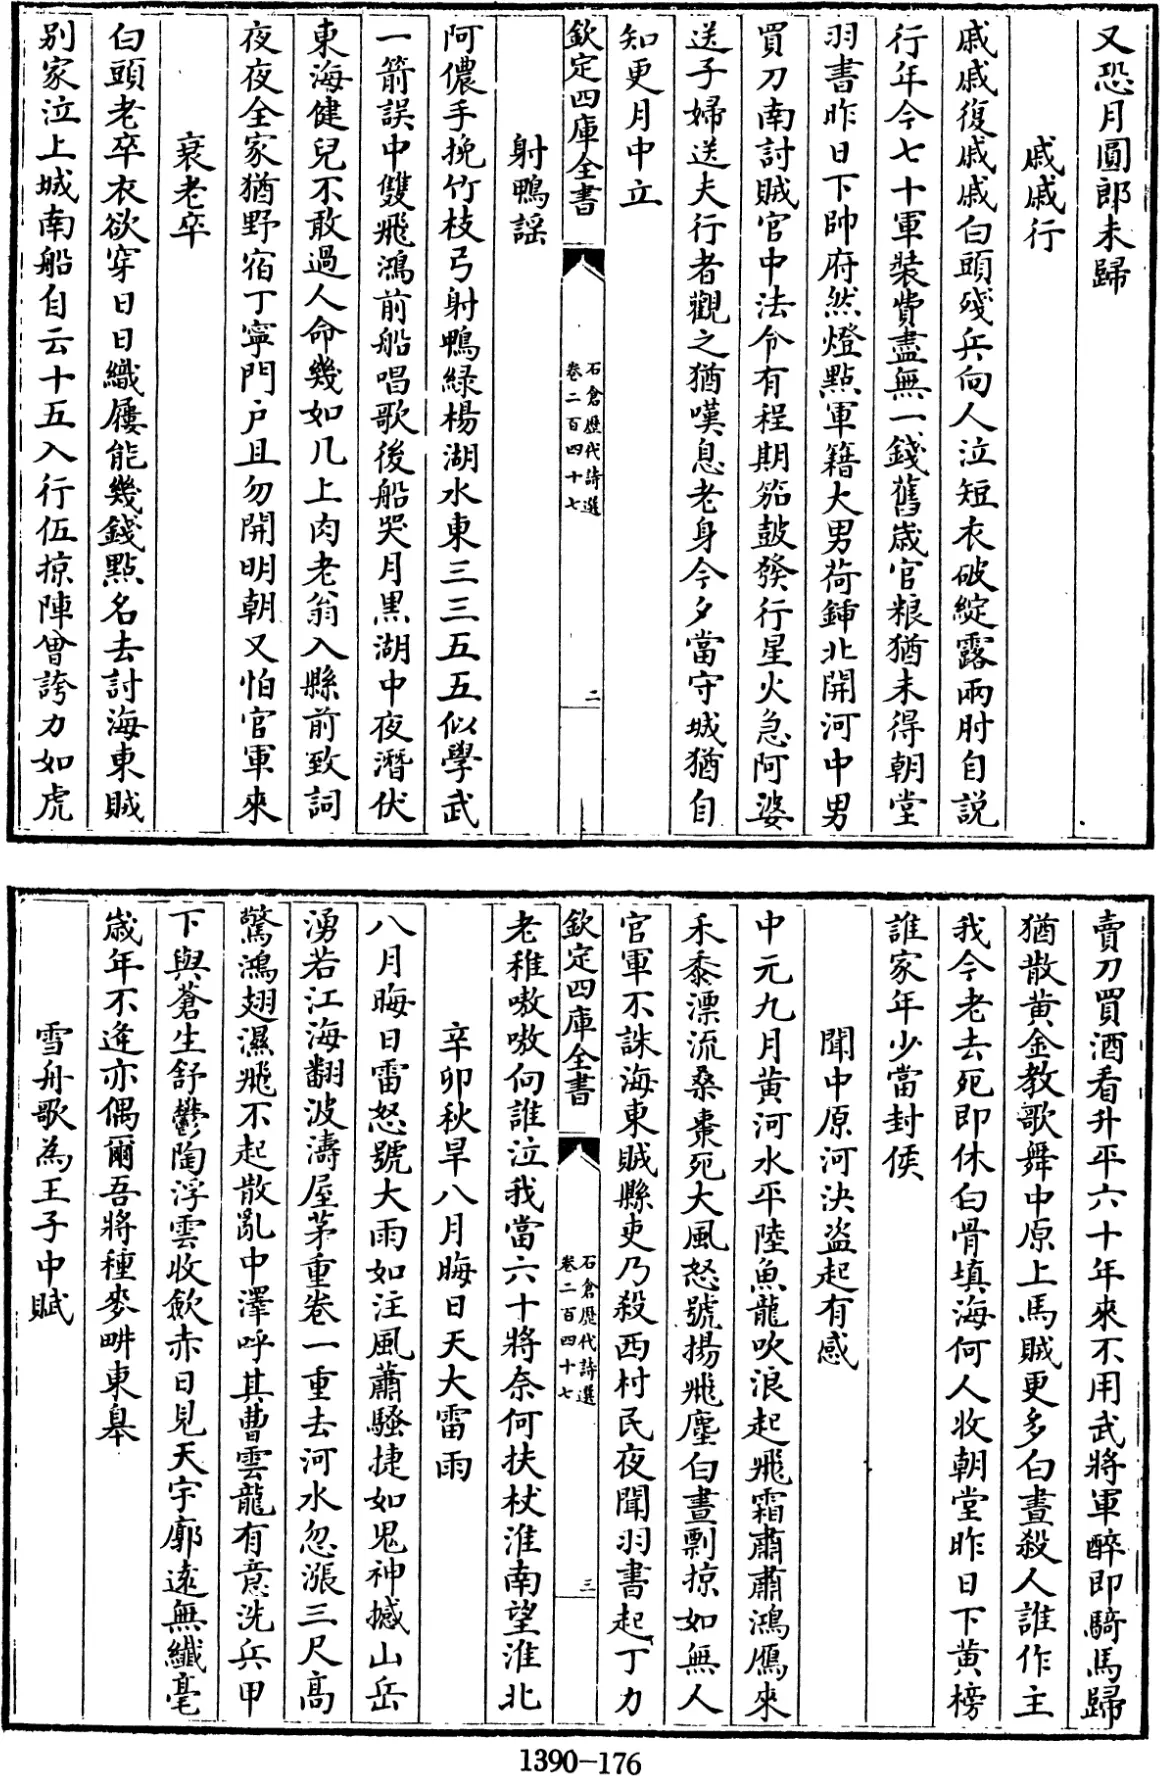 又恐月圓郎未歸
戚戚行
戚戚復戚戚白頭殘兵向人泣短衣破綻露兩肘自説
行年今七十軍裝費盡無一錢舊歳官粮猶未得朝堂
羽書昨日下帥府然燈點軍籍大男荷鍤北開河中男
買刀南討賊官中法令有程期笳鼓發行星火急阿婆
送子婦送夫行者觀之猶嘆息老身今夕當守城猶自
知更月中立
欽定四庫全書
石倉歴代詩選
卷二百四十七
二
射鴨謡
阿儂手挽竹枝弓射鴨緑楊湖水東三三五五似學武
一箭誤中雙飛鴻前船唱歌後船哭月黒湖中夜潛伏
東海健兒不敢過人命幾如几上肉老翁入縣前致詞
夜夜全家猶野宿丁寧門户且勿開明朝又怕官軍來
衰老卒
白頭老卒衣欲穿日日織屨能幾錢點名去討海東賊
别家泣上城南船自云十五入行伍掠陣曾誇力如虎
賣刀買酒看升平六十年來不用武將軍醉即騎馬歸
猶散黄金教歌舞中原上馬賊更多白晝殺人誰作主
我今老去死即休白骨填海何人收朝堂昨日下黄榜
誰家年少當封侯
聞中原河決盜起有感
中元九月黄河水平陸魚龍吹浪起飛霜肅肅鴻鴈來
禾黍漂流桑棗死大風怒號揚飛塵白晝剽掠如無人
官軍不誅海東賊縣吏乃殺西村民夜聞羽書起丁力
欽定四庫全書
石倉歴代詩選
卷二百四十七
三
老稚嗷嗷向誰泣我當六十將奈何扶杖淮南望淮北
辛卯秋旱八月晦日天大雷雨
八月晦日雷怒號大雨如注風蕭騷捷如鬼神撼山岳
湧若江海翻波濤屋茅重卷一重去河水忽漲三尺高
驚鴻翅濕飛不起散亂中澤呼其曹雲龍有意洗兵甲
下與蒼生舒鬱陶浮雲收斂赤日見天宇廓逺無纎毫
歳年不逢亦偶爾吾將種麥畊東皋
雪舟歌為王子中賦
1390-176